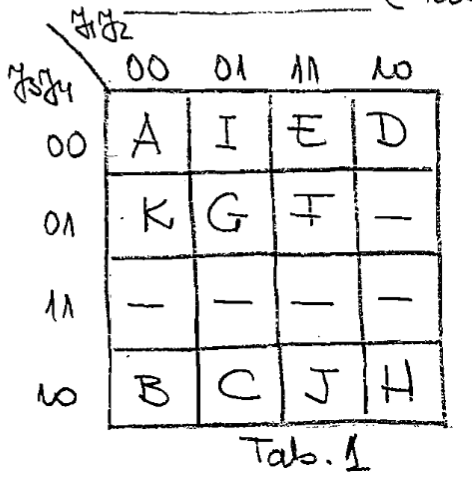 y₁y₂
y₃y₄ 00 01 11 10
00 A I E D
01 K G F —
11 — — — —
10 B C J H
Tab. 1